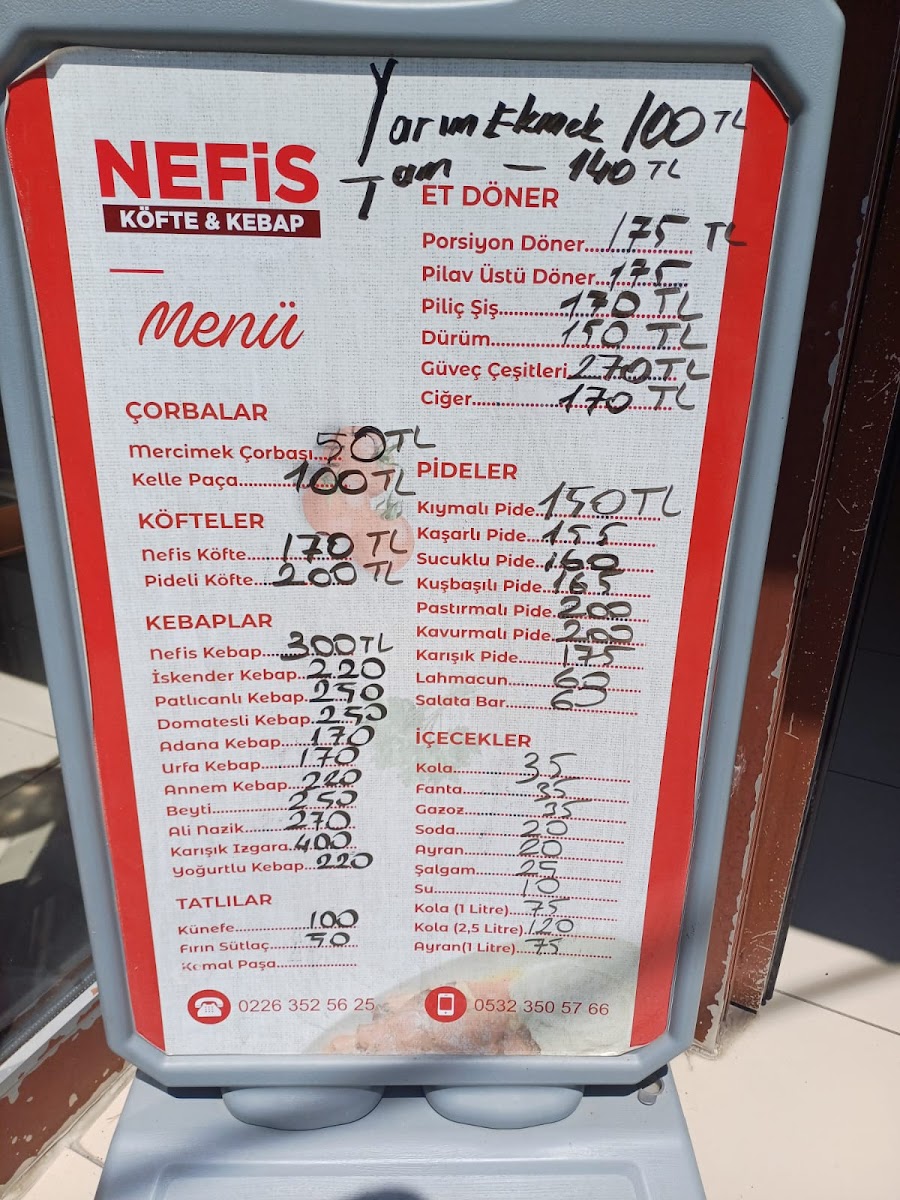 Yarım Ekmek 100 TL
Tam — 140 TL
NEFİS
KÖFTE & KEBAP
Menü
ÇORBALAR
Mercimek Çorbası.....50 TL
Kelle Paça.....100 TL
KÖFTELER
Nefis Köfte.....170 TL
Pideli Köfte.....200 TL
KEBAPLAR
Nefis Kebap.....300 TL
İskender Kebap.....220
Patlıcanlı Kebap.....250
Domatesli Kebap.....250
Adana Kebap.....170
Urfa Kebap.....170
Annem Kebap.....220
Beyti.....250
Ali Nazik.....270
Karışık Izgara.....400
Yoğurtlu Kebap.....220
TATLILAR
Künefe.....100
Fırın Sütlaç.....50
Kemal Paşa.....
ET DÖNER
Porsiyon Döner.....175 TL
Pilav Üstü Döner.....175
Piliç Şiş.....170 TL
Dürüm.....150 TL
Güveç Çeşitleri.....270 TL
Ciğer.....170 TL
PİDELER
Kıymalı Pide.....150 TL
Kaşarlı Pide.....155
Sucuklu Pide.....160
Kuşbaşılı Pide.....165
Pastırmalı Pide.....200
Kavurmalı Pide.....200
Karışık Pide.....175
Lahmacun.....60
Salata Bar.....60
İÇECEKLER
Kola.....35
Fanta.....35
Gazoz.....35
Soda.....20
Ayran.....20
Şalgam.....25
Su.....10
Kola (1 Litre).....75
Kola (2,5 Litre).....120
Ayran(1 Litre).....75
0226 352 56 25
0532 350 57 66